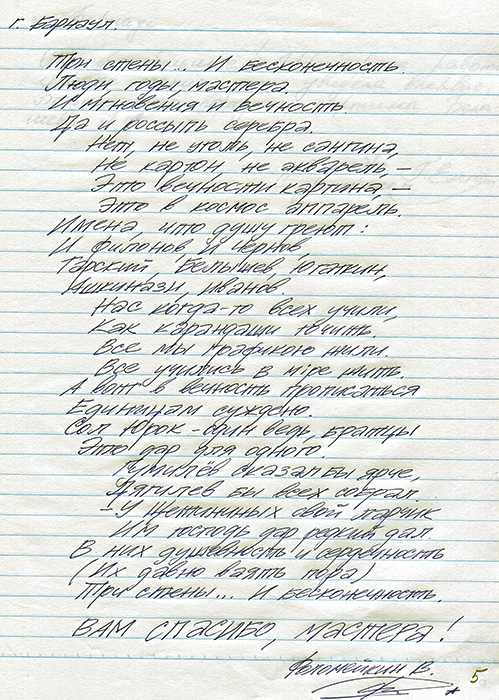 г. Барнаул.
Три стены... И бесконечность.
Люди, годы, мастера.
И мгновения и вечность.
Да и россыпь серебра.
Нет, не уголь, не сангина,
Не картон, не акварель, –
Это вечности картина, –
Это в космос аппарель.
Имена, что душу греют:
И Филонов и Чернов,
Тарский, Белышев, Югаткин,
Ишкинази, Иванов.
Нас когда-то всех учили,
Как карандаши точить.
Все мы графикою жили.
Все учились в мiре жить.
А вот в вечность прописаться
Единицам суждено.
Сол Юрок - один ведь, братцы
Это дар для одного.
Гумилёв сказал бы ярче,
Дягилев бы всех собрал.
- У Щетининых свой ларчик
Им господь дар редкий дал.
В них душевность и сердечность
(Их давно ваять пора)
Три стены... И бесконечность.
ВАМ СПАСИБО, МАСТЕРА!
В.
5